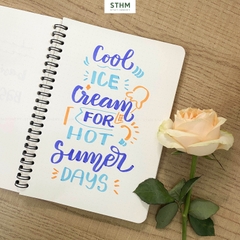 STHM
Cool
ICE
Cream
FOR
HOT
Sumer
DAYS